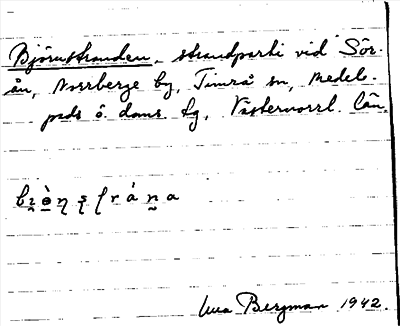 Björnstranden, strandparti vid Sör-
ån, Norrberge by, Timrå sn, Medel-
pads ö. doms. tg, Västernorrl. län.
Bergman 1942.